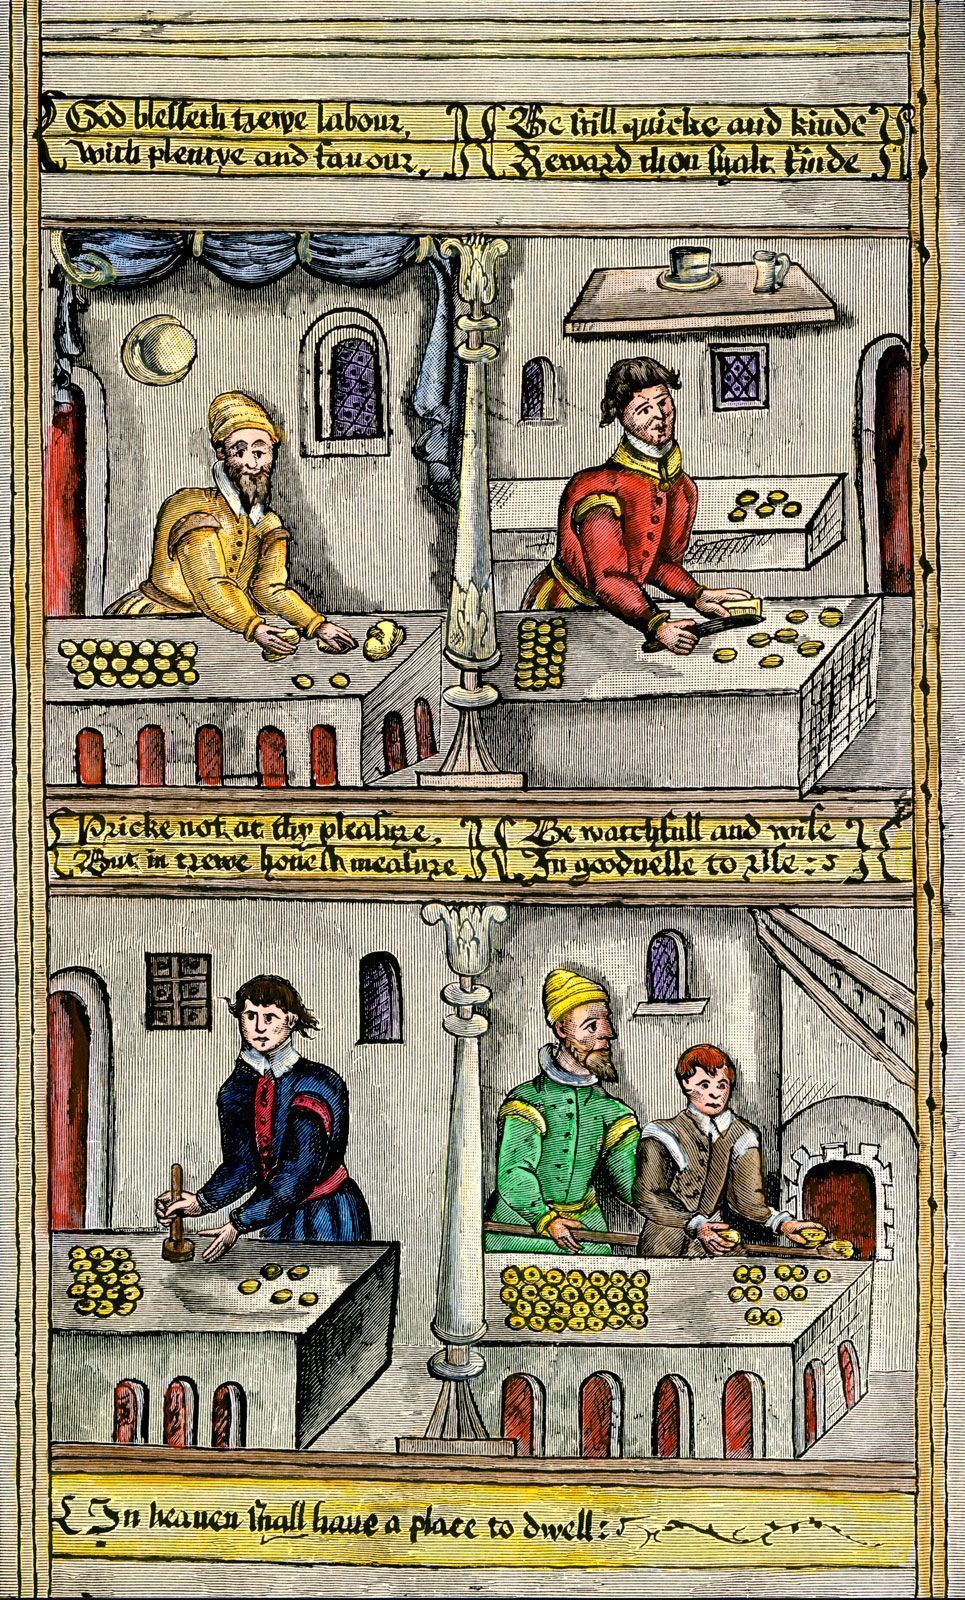 God blesseth trewe labour,
With plentye and favour,
Be still quicke and kinde
Reward thou shalt finde
Pricke not at thy pleasure,
But in trewe honest measure
Be watchfull and wise
In goodnesse to rise:
In heauen shall haue a place to dwell: